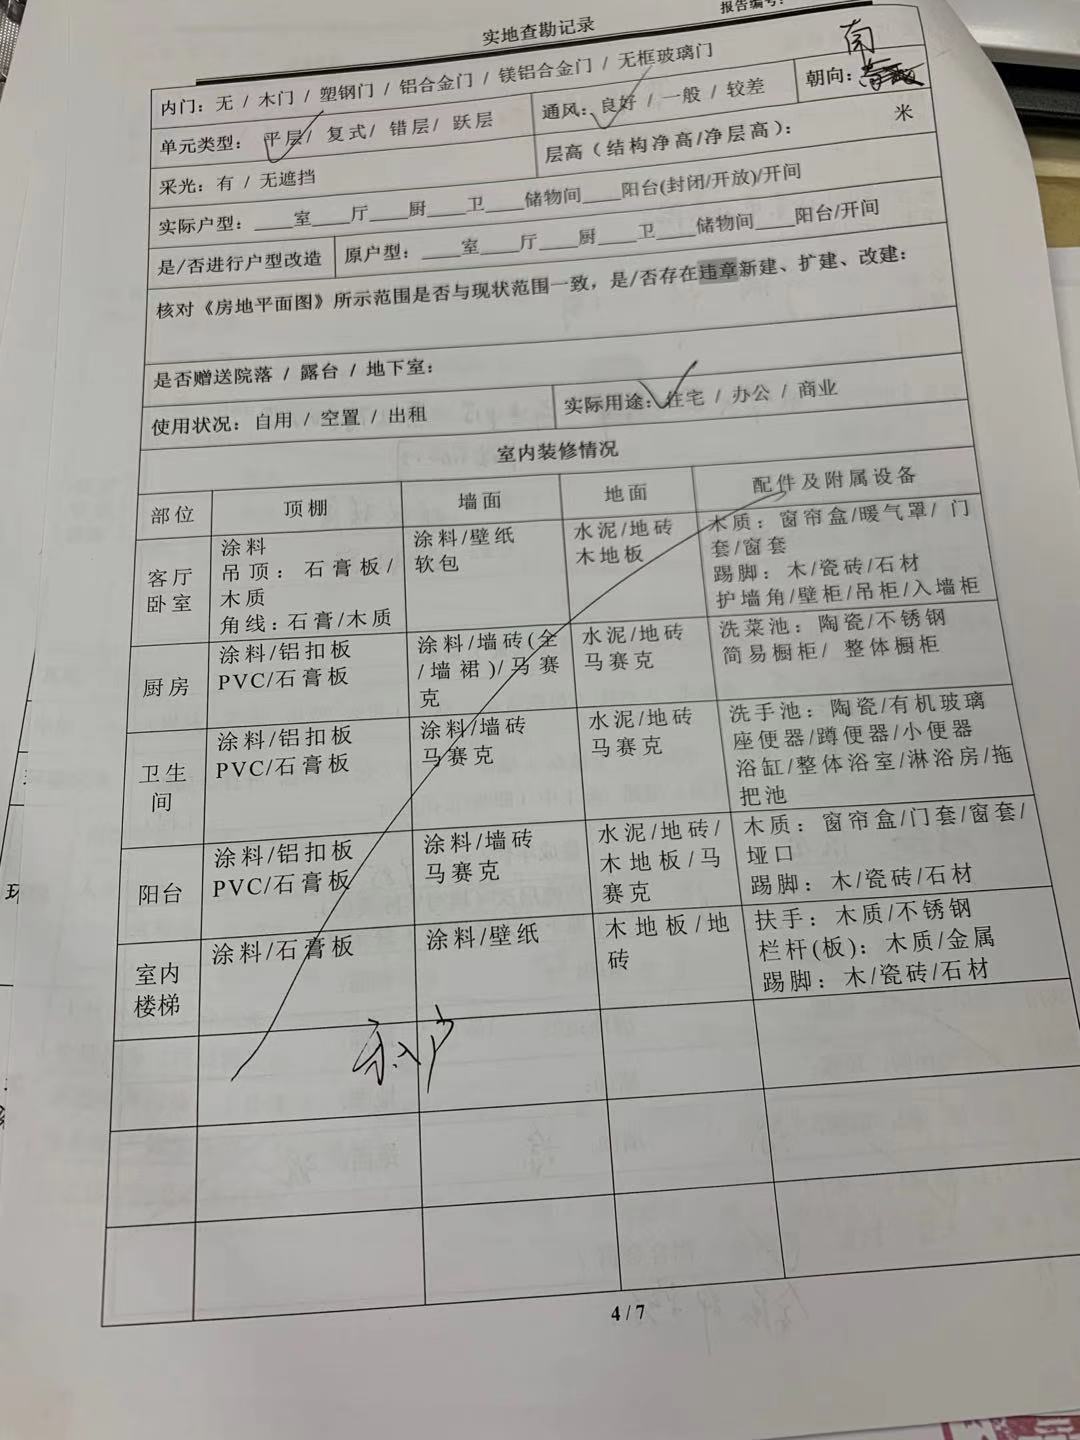 报告编号：
实地查勘记录
内门：无 / 木门 / 塑钢门 / 铝合金门 / 镁铝合金门 / 无框玻璃门
单元类型： 平层/ 复式/ 错层/ 跃层
通风：良好 / 一般 / 较差
朝向：南
采光：有 / 无遮挡
层高（结构净高/净层高）： 米
实际户型：____室____厅____厨____卫____储物间____阳台(封闭/开放)/开间
是/否进行户型改造
原户型：____室____厅____厨____卫____储物间____阳台/开间
核对《房地平面图》所示范围是否与现状范围一致，是/否存在违章新建、扩建、改建：
是否赠送院落 / 露台 / 地下室：
使用状况：自用 / 空置 / 出租
实际用途：住宅 / 办公 / 商业
室内装修情况
部位
顶棚
墙面
地面
配件及附属设备
客厅
卧室
涂料
吊顶：石膏板/
木质
角线：石膏/木质
涂料/壁纸
软包
水泥/地砖
木地板
木质：窗帘盒/暖气罩/ 门
套/窗套
踢脚：木/瓷砖/石材
护墙角/壁柜/吊柜/入墙柜
厨房
涂料/铝扣板
PVC/石膏板
涂料/墙砖(全
/墙裙)/马赛
克
水泥/地砖
马赛克
洗菜池：陶瓷/不锈钢
简易橱柜/ 整体橱柜
卫生
间
涂料/铝扣板
PVC/石膏板
涂料/墙砖
马赛克
水泥/地砖
马赛克
洗手池：陶瓷/有机玻璃
座便器/蹲便器/小便器
浴缸/整体浴室/淋浴房/拖
把池
阳台
涂料/铝扣板
PVC/石膏板
涂料/墙砖
马赛克
水泥/地砖/
木地板/马
赛克
木质：窗帘盒/门套/窗套/
垭口
踢脚：木/瓷砖/石材
室内
楼梯
涂料/石膏板
涂料/壁纸
木地板/地
砖
扶手：木质/不锈钢
栏杆(板)：木质/金属
踢脚：木/瓷砖/石材
未入户
4 / 7